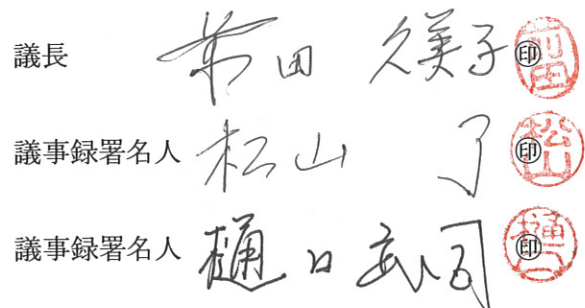 議長 前田 久美子 ㊞ 前田
議事録署名人 松山 了 ㊞ 松山
議事録署名人 樋口 武司 ㊞ 樋口